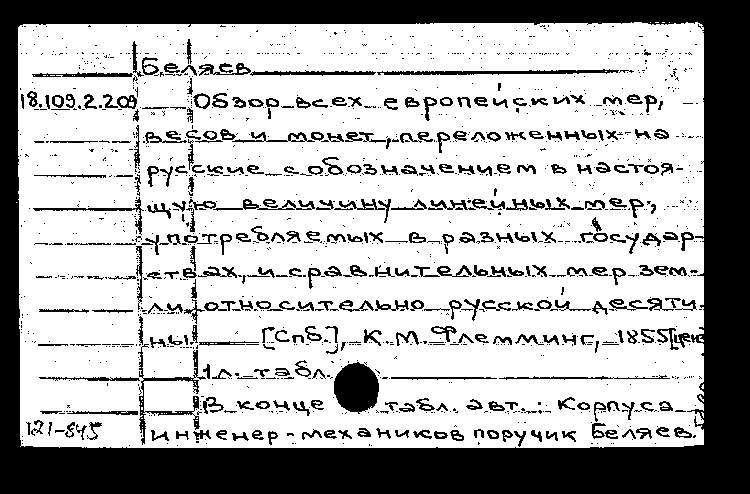 Беляев
18.109.2.209 Обзор всех европейских мер,
весов и монет, переложенных на
русские с обозначением в настоя-
щую величину линейных мер,
употребляемых в разных государ-
ствах, и сравнительных мер зем-
ли относительно русской десяти-
ны [Спб.], К.М. Флемминг, 1855
1 л. табл.
В конце табл. авт.: Корпуса
121-845 инженер-механиков поручик Беляев.